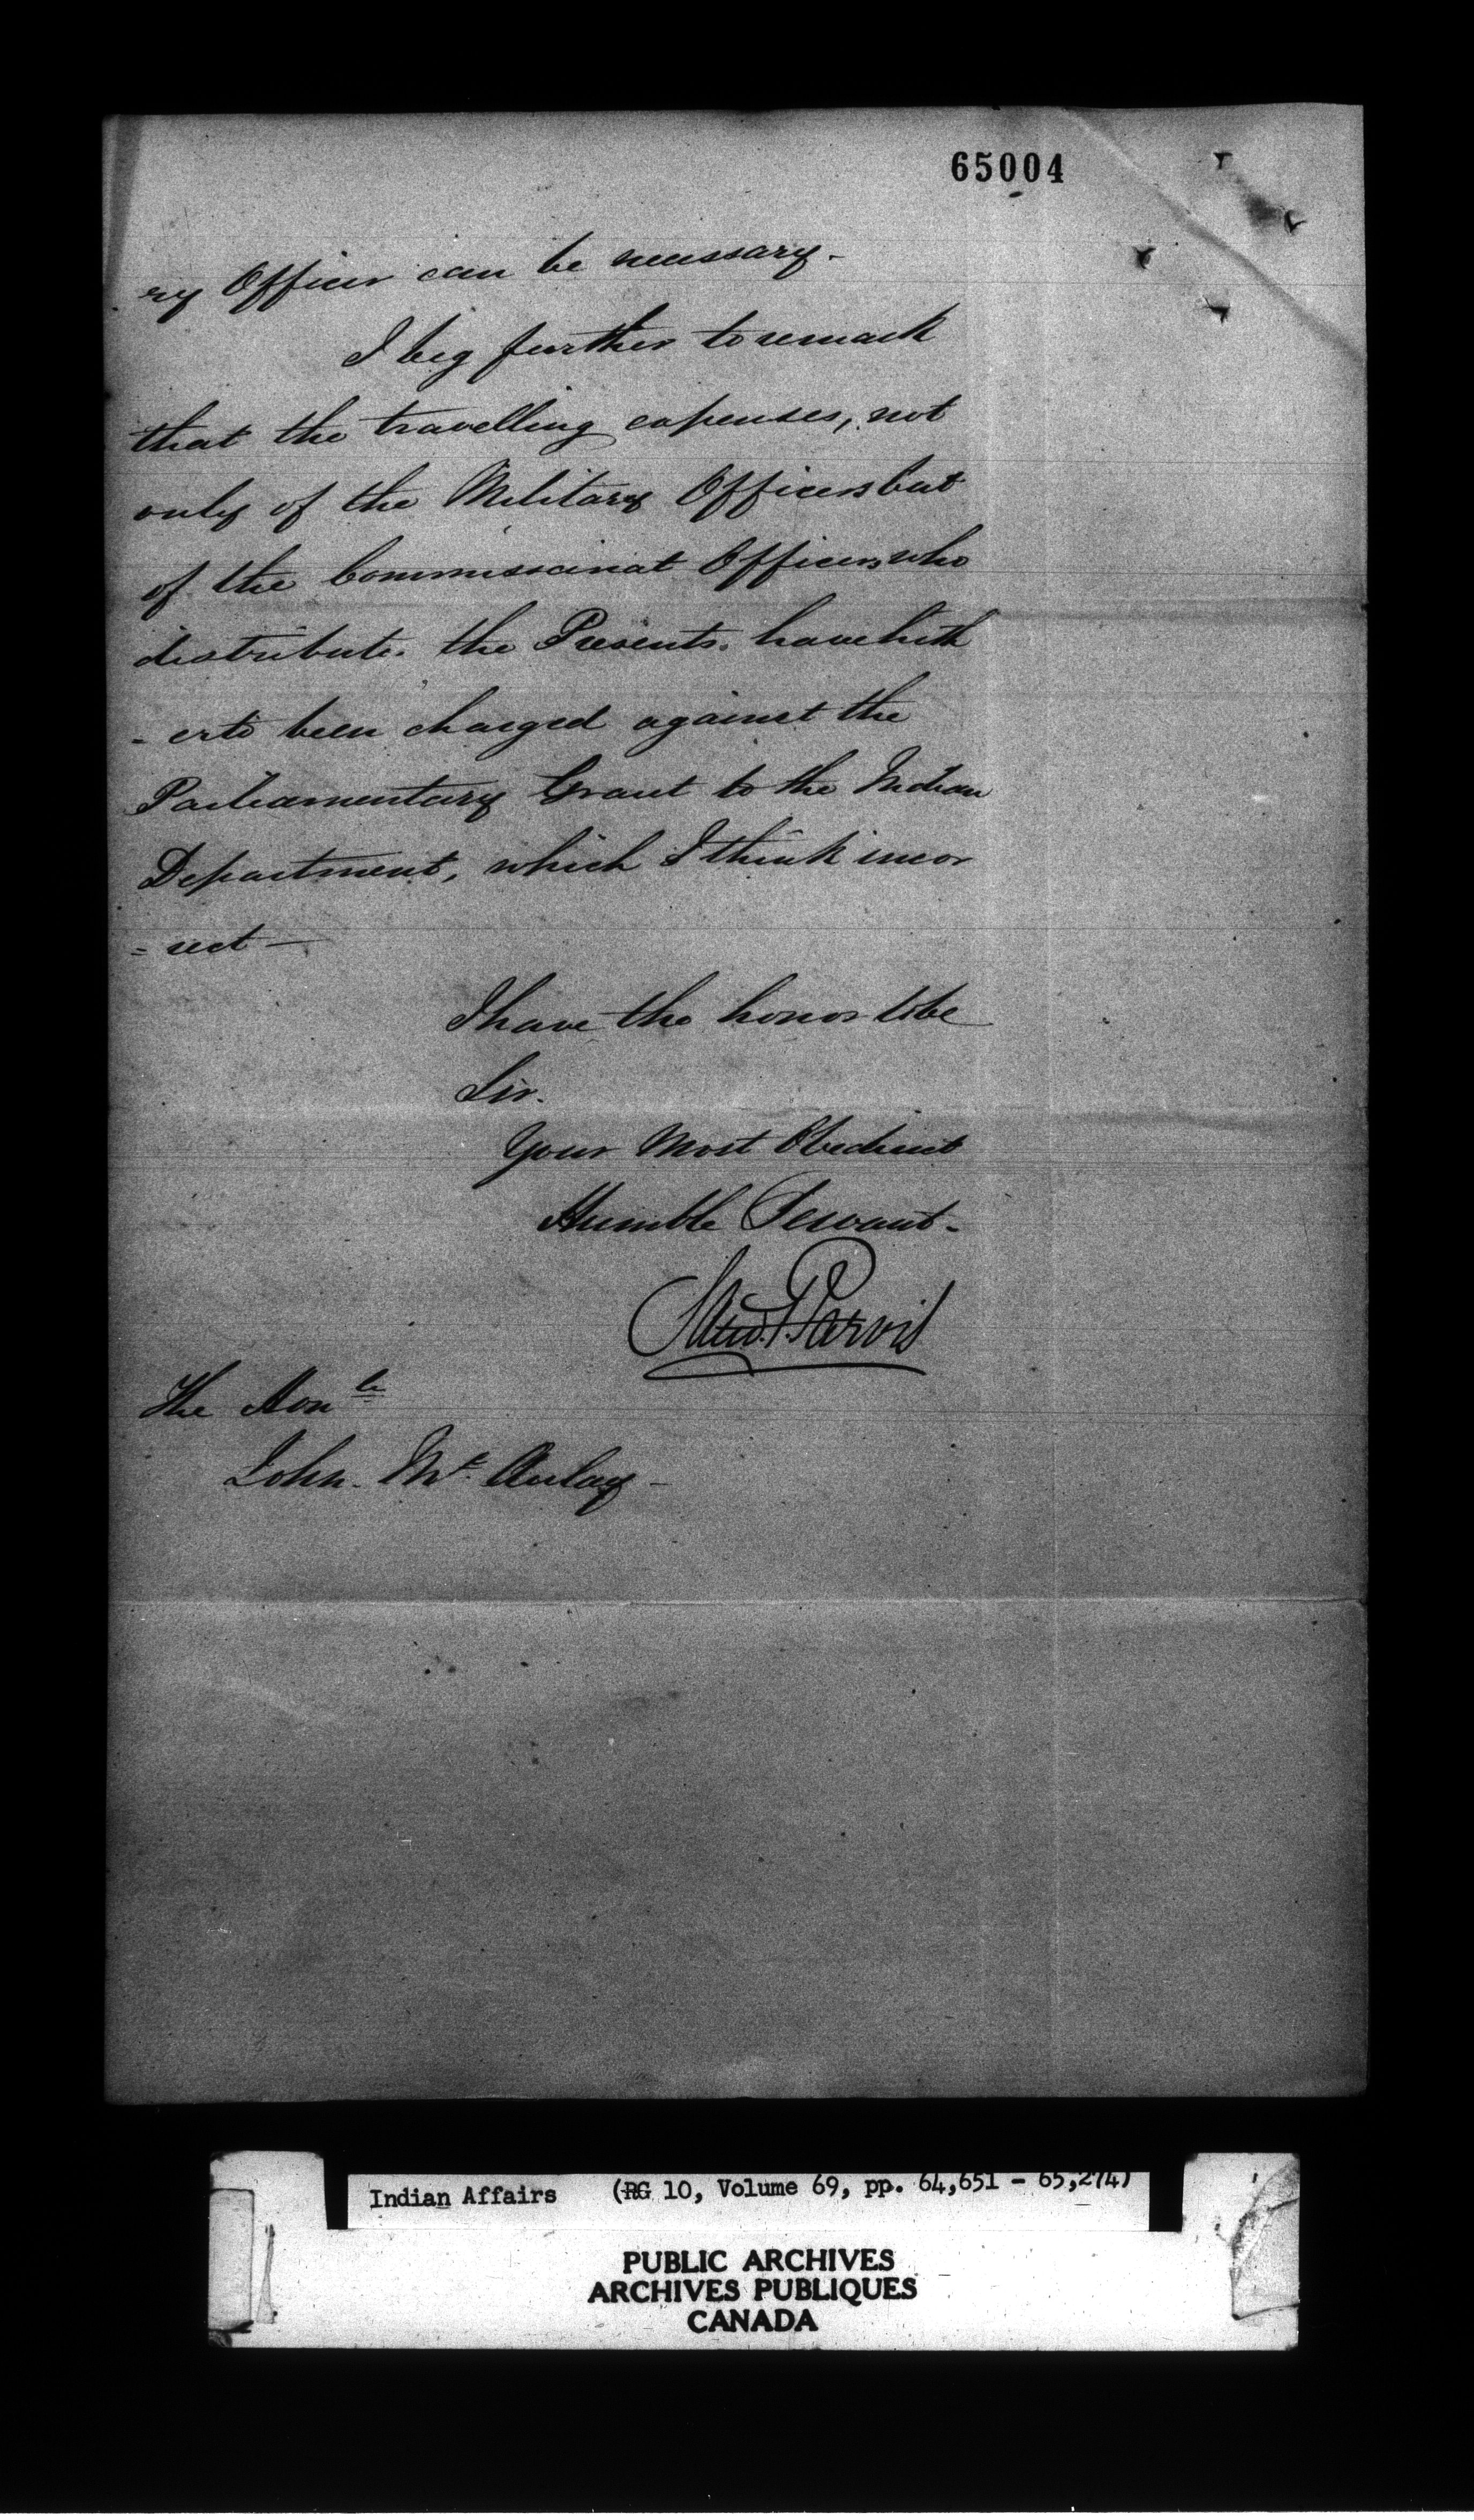 65004
ry Officer can be necessary.
I beg further to remark
that the travelling expenses, not
only of the Military Officers but
of the Commissariat Officers who
distribute the Presents, have hith
- erto been charged against the
Parliamentary Grant to the Indian
Department, which I think incor
= rect —
I have the honor to be
Sir.
Your Most Obedient
Humble Servant -
Jarvis
The Honble
John Mc Aulay -
Indian Affairs (RG 10, Volume 69, pp. 64,651 - 65,274)
PUBLIC ARCHIVES
ARCHIVES PUBLIQUES
CANADA